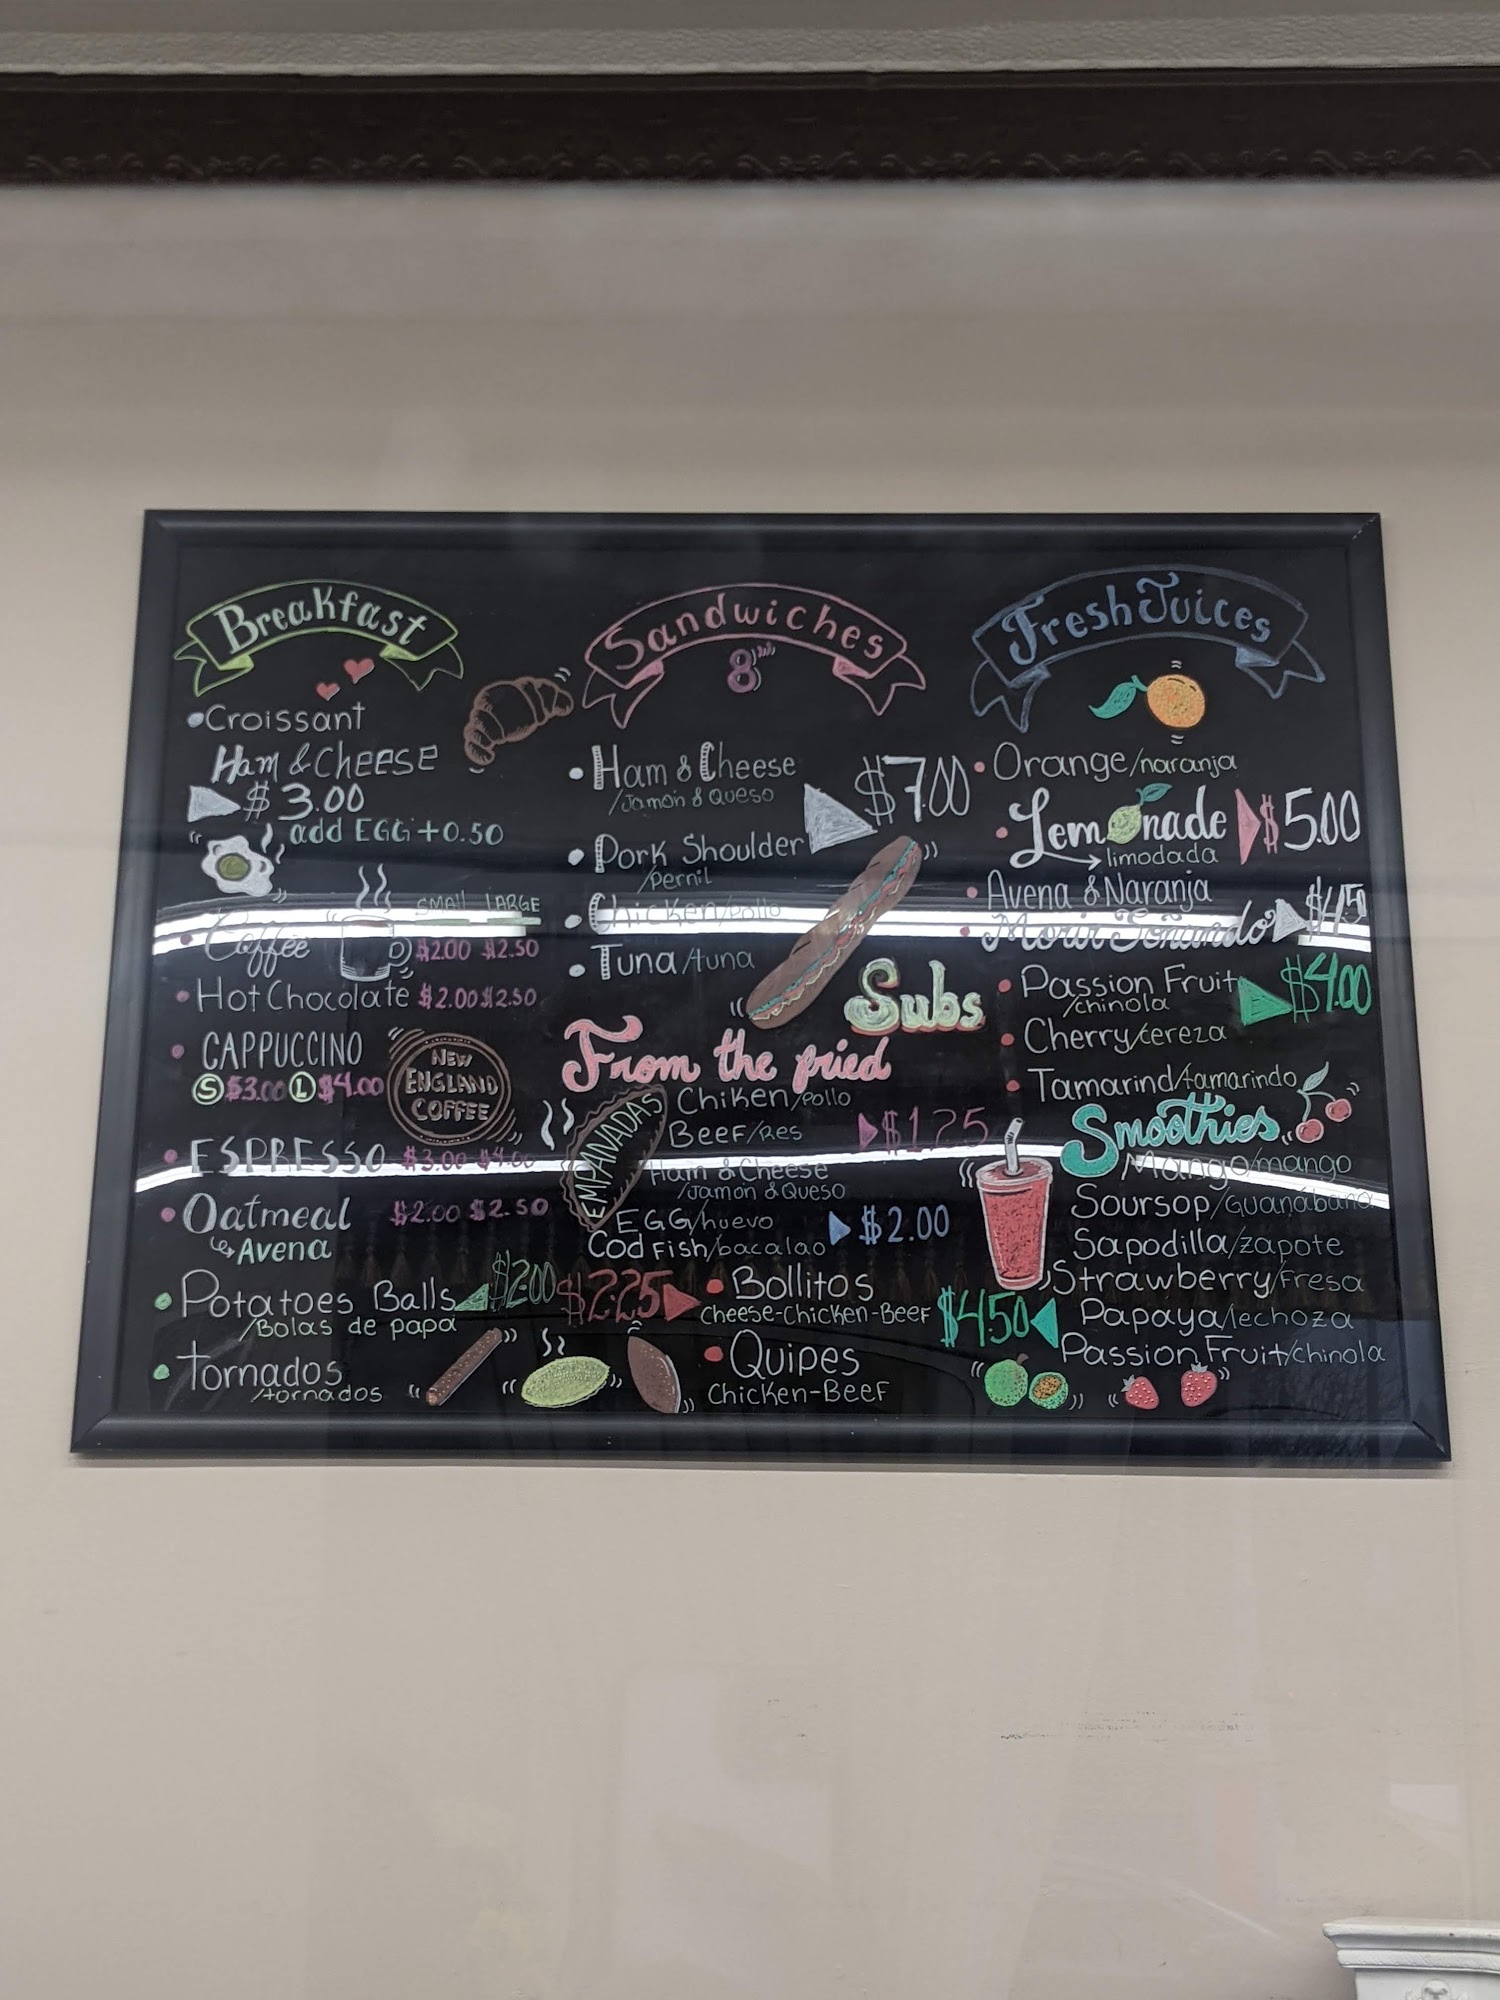 Breakfast
•Croissant
Ham & Cheese
$3.00
add EGG +0.50
SMALL LARGE
• Coffee $2.00 $2.50
• Hot Chocolate $2.00 $2.50
• CAPPUCCINO
S $3.00 L $4.00
NEW
ENGLAND
COFFEE
• ESPRESSO $3.00 $4.00
• Oatmeal $2.00 $2.50
Avena
• Potatoes Balls $2.00
/Bolas de papa
• Tornados
/tornados
Sandwiches
8"
• Ham & Cheese $7.00
/Jamón & Queso
• Pork Shoulder
/Pernil
• Chicken/pollo
• Tuna/tuna
Subs
From the pried
EMPANADAS
Chiken/pollo
Beef/Res $1.25
Ham & Cheese
/Jamon & Queso
EGG/huevo $2.00
Cod Fish/bacalao
$2.25 • Bollitos
Cheese-Chicken-Beef
• Quipes
Chicken-Beef
Fresh Juices
• Orange/naranja
• Lemonade $5.00
limodada
• Avena & Naranja
• Morir Soñando
• Passion Fruit $4.00
/chinola
• Cherry/cereza
• Tamarind/tamarindo
Smoothies
Mango/mango
Soursop/Guanábana
Sapodilla/zapote
Strawberry/Fresa
$4.50 Papaya/lechoza
Passion Fruit/Chinola